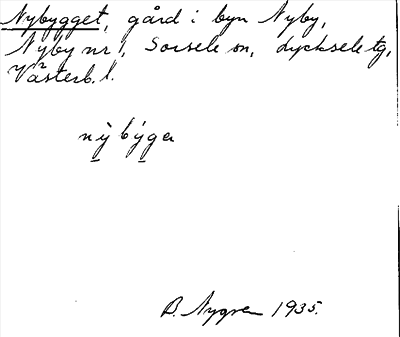 Nybygget, gård i byn Nyby,
Nyby nr 1, Sorsele sn, Lycksele tg,
Västerb. l.
nỳbýgæ
B. Nygren 1935.